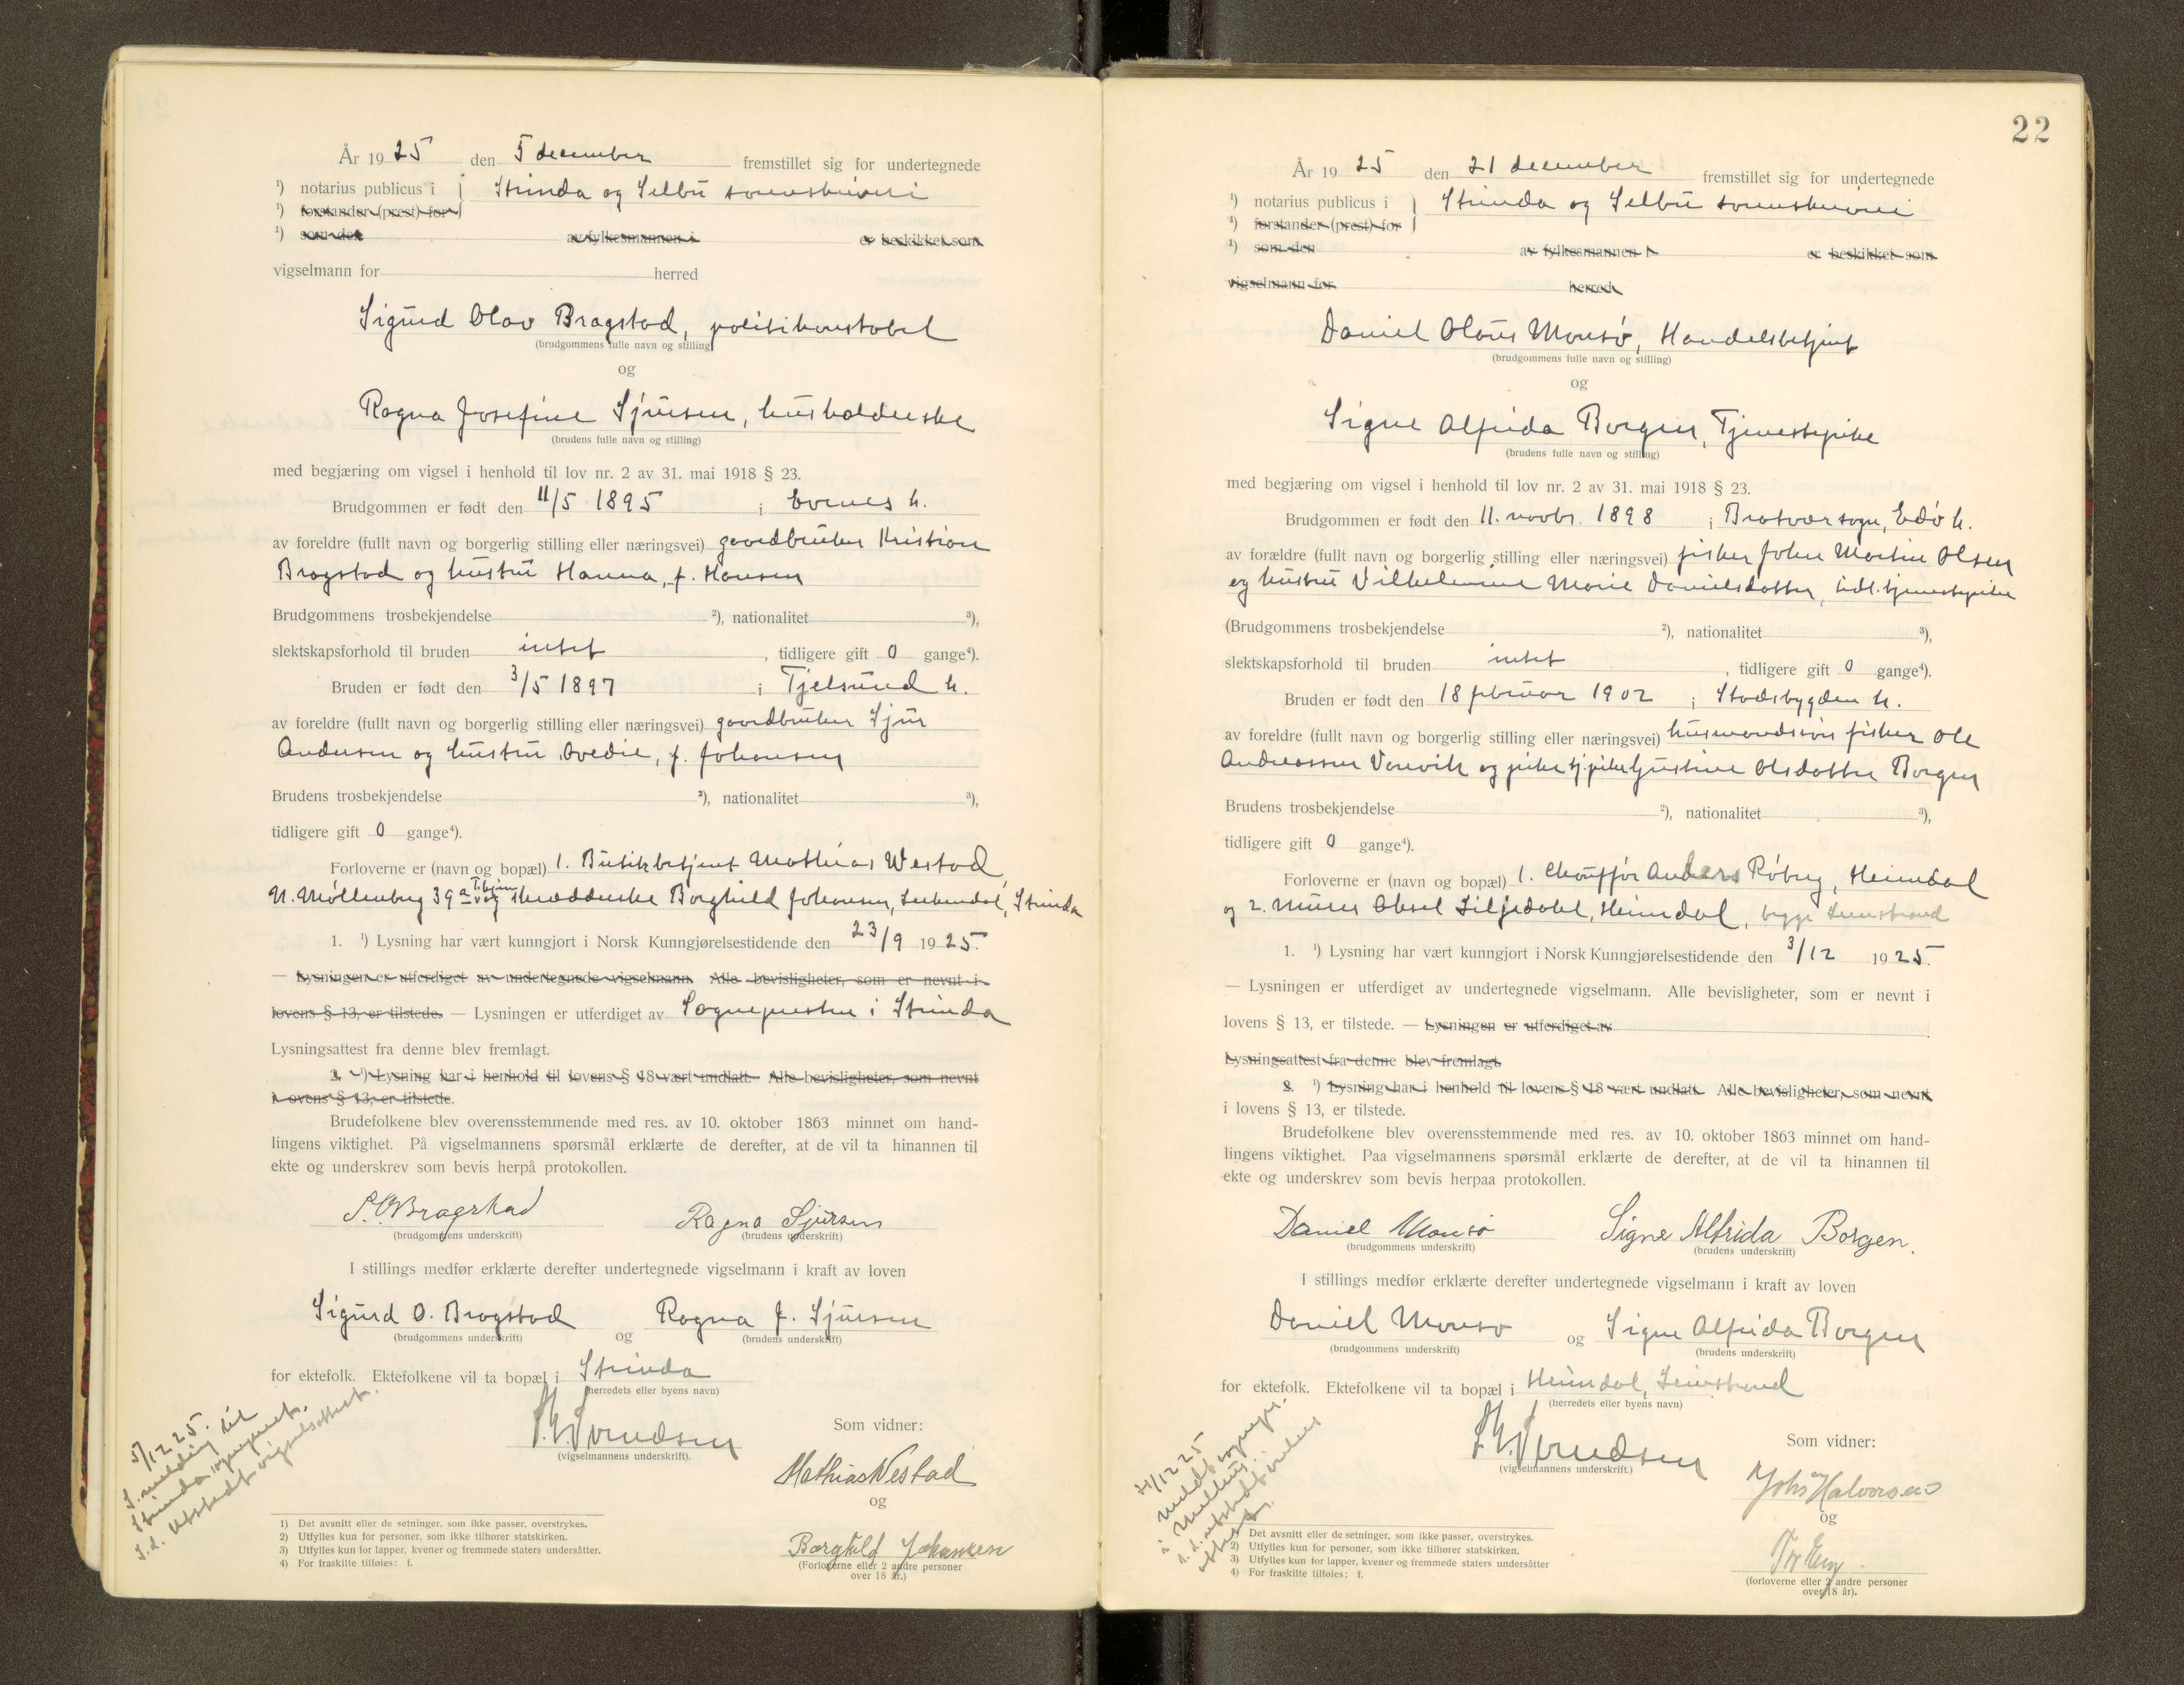 År 1925 den 5 december fremstillet sig for undertegnede
¹) notarius publicus i } Strinda og Selbu sorenskriveri
¹) forstander (prest) for
¹) som den av fylkesmannen i er beskikket som
vigselmann for herred
Sigurd Olav Bragstad, politikonstabel
(brudgommens fulle navn og stilling)
og
Ragna Josefine Sjursen, husholderske
(brudens fulle navn og stilling)
med begjæring om vigsel i henhold til lov nr. 2 av 31. mai 1918 § 23.
Brudgommen er født den 11/5 1895 i Evenes h.
av foreldre (fullt navn og borgerlig stilling eller næringsvei) gaardbruker Kristian
Bragstad og hustru Hanna, f. Hansen
Brudgommens trosbekjendelse ²), nationalitet ³),
slektskapsforhold til bruden intet, tidligere gift 0 gange⁴).
Bruden er født den 3/5 1897 i Tjelsund h.
av foreldre (fullt navn og borgerlig stilling eller næringsvei) gaardbruker Sjur
Andersen og hustru Ovedie, f. Johansen
Brudens trosbekjendelse ²), nationalitet ³),
tidligere gift 0 gange⁴).
Forloverne er (navn og bopæl) 1. Butikbetjent Mathias Westad,
N. Møllenberg 39a T.hjem og skrædderske Borghild Johansen, Leekendal, Strinda
1. ¹) Lysning har vært kunngjort i Norsk Kunngjørelsestidende den 23/9 1925.
— Lysningen er utferdiget av undertegnede vigselmann. Alle bevisligheter, som er nevnt i
lovens § 13, er tilstede. — Lysningen er utferdiget av Sognepresten i Strinda
Lysningsattest fra denne blev fremlagt.
2. ¹) Lysning har i henhold til lovens § 18 vært undlatt. Alle bevisligheter, som nevnt
i lovens § 13, er tilstede.
Brudefolkene blev overensstemmende med res. av 10. oktober 1863 minnet om hand-
lingens viktighet. På vigselmannens spørsmål erklærte de derefter, at de vil ta hinannen til
ekte og underskrev som bevis herpå protokollen.
S.O Bragstad Ragna Sjursen
(brudgommens underskrift) (brudens underskrift)
I stillings medfør erklærte derefter undertegnede vigselmann i kraft av loven
Sigurd O. Bragstad og Ragna J. Sjursen
(brudgommens underskrift) (brudens underskrift)
for ektefolk. Ektefolkene vil ta bopæl i Strinda
(herredets eller byens navn)
(vigselmannens underskrift).
Som vidner:
Mathias Westad
og
Borghild Johansen
(Forloverne eller 2 andre personer
over 18 år.)
5/12 25.
S. melding til
Strinda sogneprest.
S.d. utstedt vigselsattest.
1) Det avsnitt eller de setninger, som ikke passer, overstrykes.
2) Utfylles kun for personer, som ikke tilhører statskirken.
3) Utfylles kun for lapper, kvener og fremmede staters undersåtter.
4) For fraskilte tilføies: f.
22
År 1925 den 21 december fremstillet sig for undertegnede
¹) notarius publicus i } Strinda og Selbu sorenskriveri
¹) forstander (prest) for
¹) som den av fylkesmannen i er beskikket som
vigselmann for herred
Daniel Olaus Monsø, Handelsbetjent
(brudgommens fulle navn og stilling)
og
Signe Alfrida Borgen, Tjenestepike
(brudens fulle navn og stilling)
med begjæring om vigsel i henhold til lov nr. 2 av 31. mai 1918 § 23.
Brudgommen er født den 11. novbr. 1898 i Bratvær sogn, Edø h.
av forældre (fullt navn og borgerlig stilling eller næringsvei) fisker John Martin Olsen
og hustru Vilhelmine Marie Danielsdatter, tidl. tjenestepike
(Brudgommens trosbekjendelse ²), nationalitet ³),
slektskapsforhold til bruden intet, tidligere gift 0 gange⁴).
Bruden er født den 18 februar 1902 i Stadsbygden h.
av foreldre (fullt navn og borgerlig stilling eller næringsvei) husmandssøn fisker Ole
Andreassen Værvik og pike tj.pike Gjustine Olsdatter Borgen
Brudens trosbekjendelse ²), nationalitet ³),
tidligere gift 0 gange⁴).
Forloverne er (navn og bopæl) 1. Chauffør Anders Røberg, Heimdal
og 2. Murer Aksel Liljedahl, Heimdal, begge Leinstrand
1. ¹) Lysning har vært kunngjort i Norsk Kunngjørelsestidende den 3/12 1925.
— Lysningen er utferdiget av undertegnede vigselmann. Alle bevisligheter, som er nevnt i
lovens § 13, er tilstede. — Lysningen er utferdiget av
Lysningsattest fra denne blev fremlagt.
2. ¹) Lysning har i henhold til lovens § 18 vært undlatt. Alle bevisligheter, som nevnt
i lovens § 13, er tilstede.
Brudefolkene blev overensstemmende med res. av 10. oktober 1863 minnet om hand-
lingens viktighet. Paa vigselmannens spørsmål erklærte de derefter, at de vil ta hinannen til
ekte og underskrev som bevis herpaa protokollen.
Daniel Monsø Signe Alfrida Borgen.
(brudgommens underskrift) (brudens underskrift)
I stillings medfør erklærte derefter undertegnede vigselmann i kraft av loven
Daniel Monsø og Signe Alfrida Borgen
(brudgommens underskrift) (brudens underskrift)
for ektefolk. Ektefolkene vil ta bopæl i Heimdal, Leinstrand
(herredets eller byens navn)
(vigselmannens underskrift.)
Som vidner:
Johs Halvorsen
og
(forloverne eller 2 andre personer
over 18 år).
21/12 25
meldt sognepr.
i Melhus.
s.d. utstedt vielses
attest.
1) Det avsnitt eller de setninger, som ikke passer, overstrykes.
2) Utfylles kun for personer, som ikke tilhører statskirken.
3) Utfylles kun for lapper, kvener og fremmede staters undersåtter
4) For fraskilte tilføies: f.